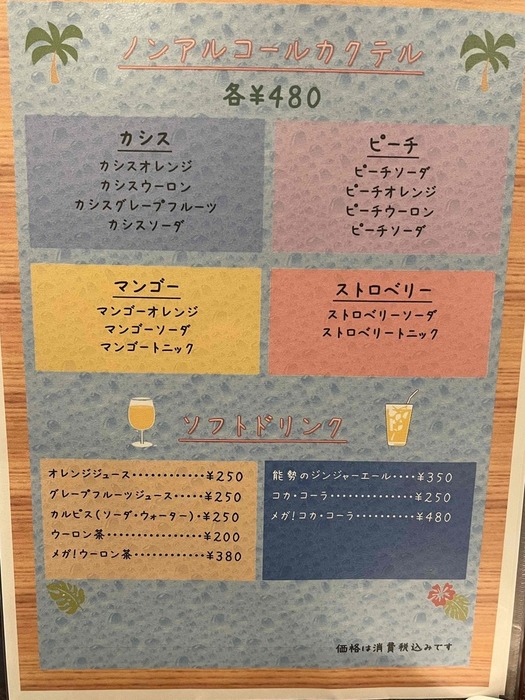 ノンアルコールカクテル
各¥480
カシス
カシスオレンジ
カシスウーロン
カシスグレープフルーツ
カシスソーダ
ピーチ
ピーチソーダ
ピーチオレンジ
ピーチウーロン
ピーチソーダ
マンゴー
マンゴーオレンジ
マンゴーソーダ
マンゴートニック
ストロベリー
ストロベリーソーダ
ストロベリートニック
ソフトドリンク
オレンジジュース・・・・・・・・・・・・¥250
グレープフルーツジュース・・・・・¥250
カルピス(ソーダ・ウォーター)・¥250
ウーロン茶・・・・・・・・・・・・・・・・¥200
メガ!ウーロン茶・・・・・・・・・・・¥380
能勢のジンジャーエール・・・・¥350
コカ・コーラ・・・・・・・・・・・・・¥250
メガ!コカ・コーラ・・・・・・・・・・¥480
価格は消費税込みです